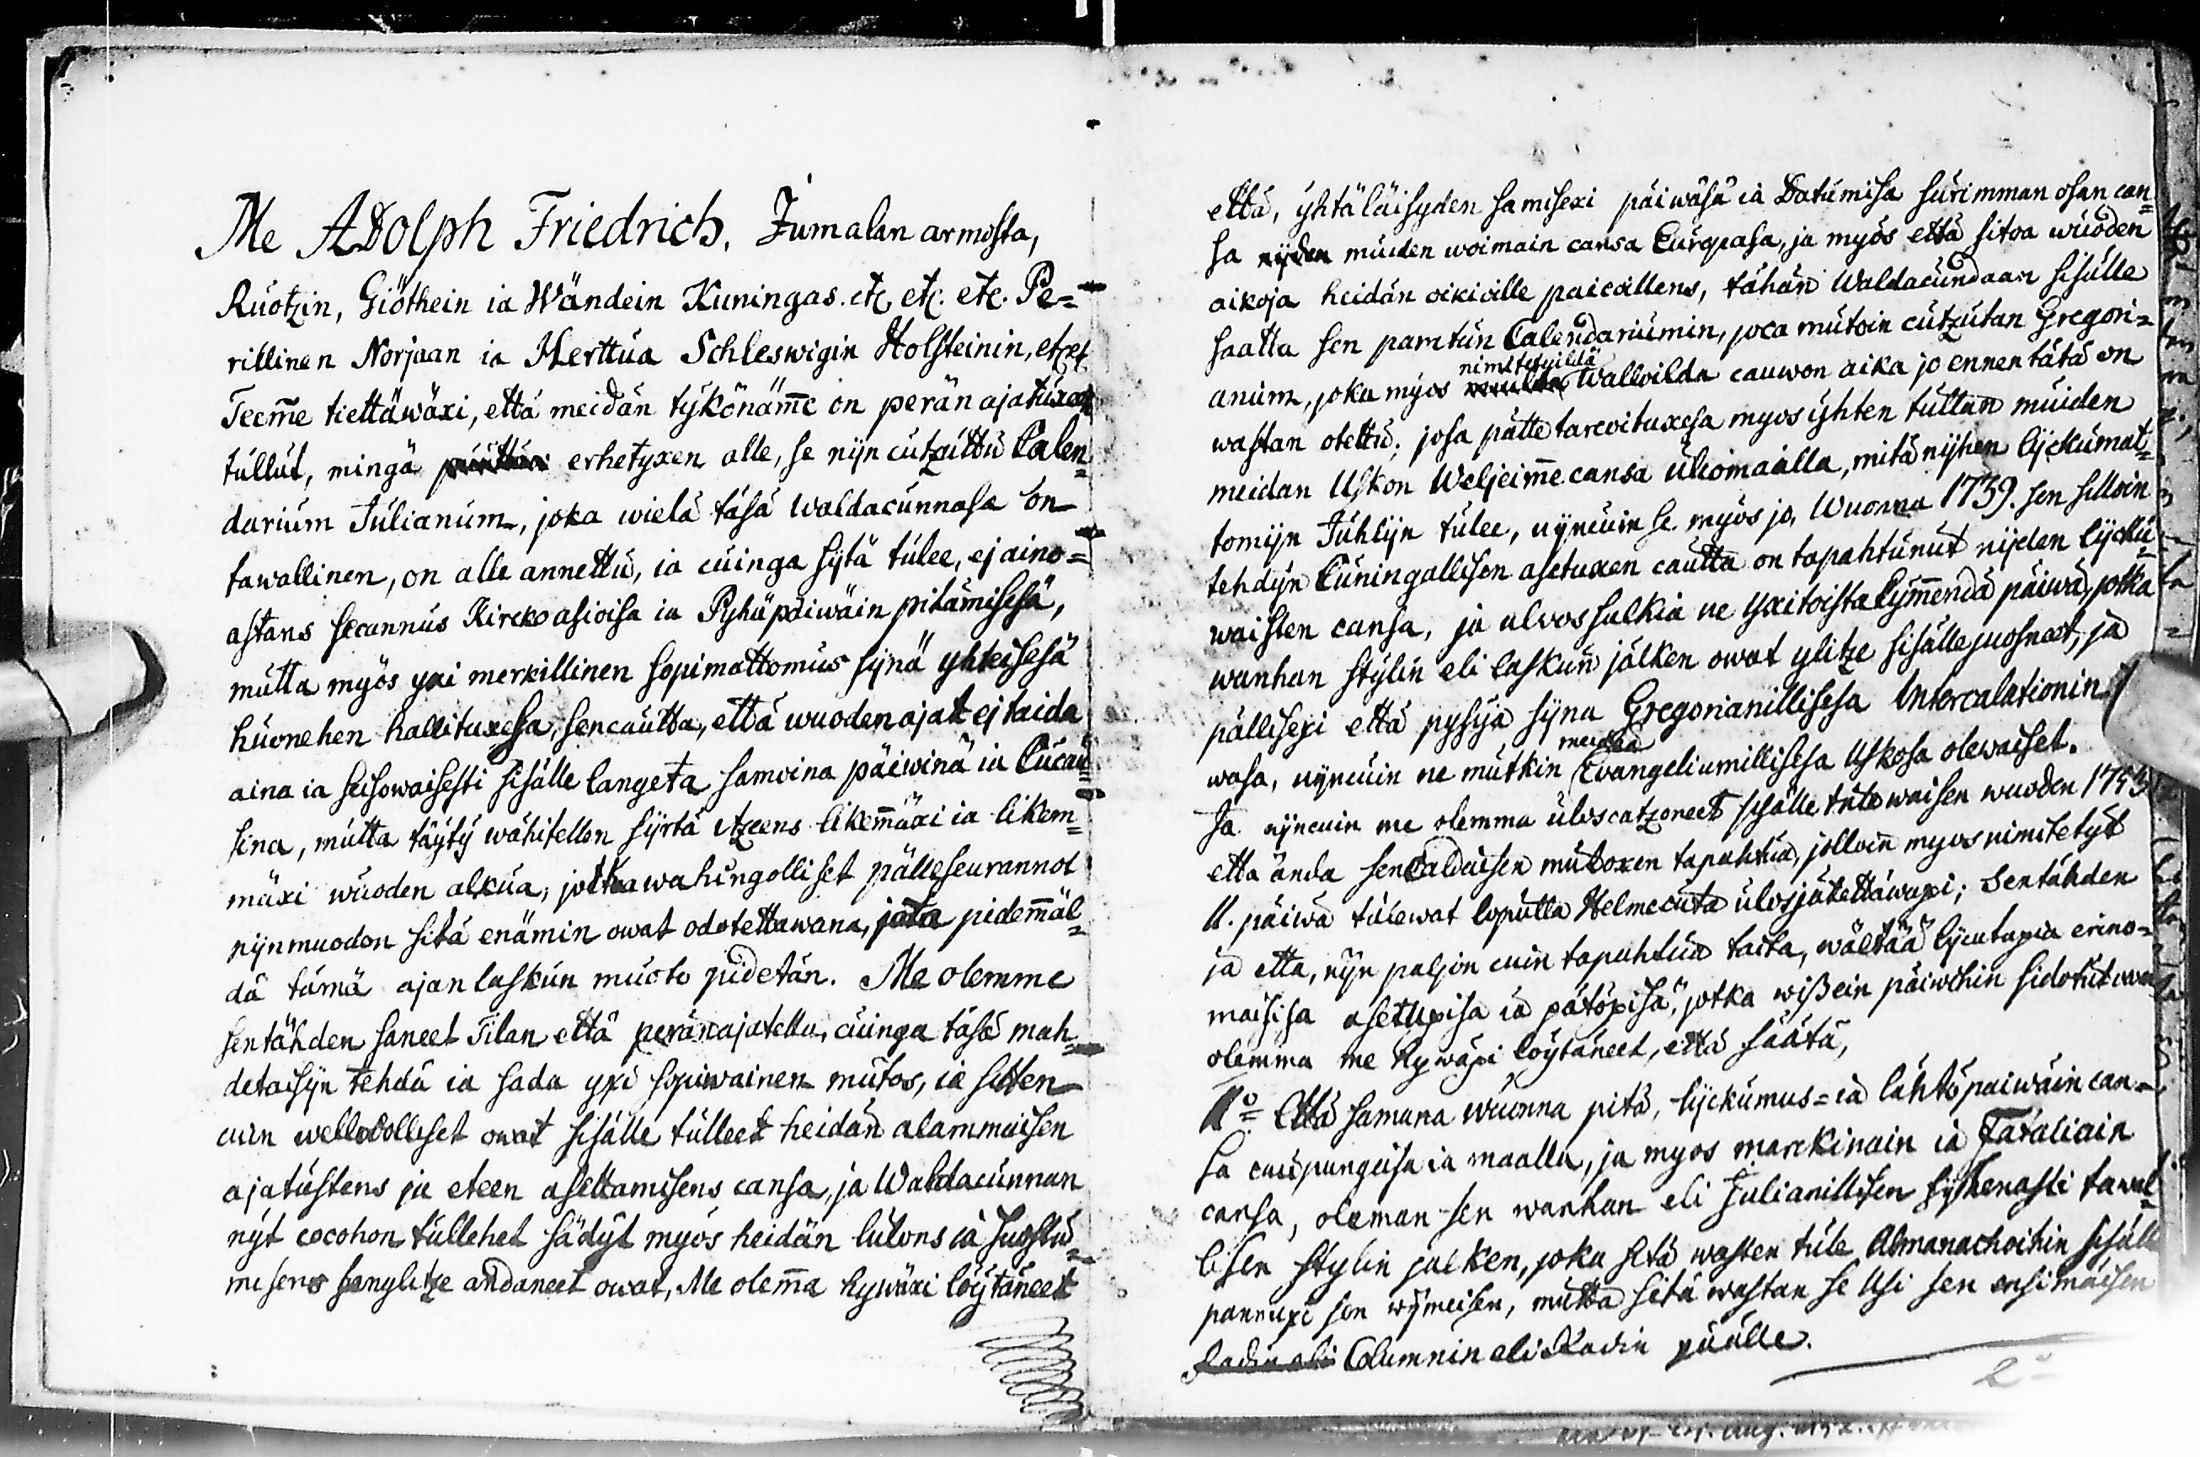 Me ADolph Friedrich, Jumalan armosta,
Ruotzin, Giöthein ia Wändein Kuningas. etc. etc. etc. Pe=
rillinen Norjaan ia Herttua Schleswigin Holsteinin, etc etc
Teem̅e tiettäwäxi, että meidän tykönäm̅e on perän ajatuxen
tullut, mingä erhetyxen alle, se nijn cutzuttu Calen=
darium Julianum, joka wielä täsä waldacunnasa on
tawallinen, on alle annettu, ia cuinga sijtä tulee, ej aino=
astans secannus Kircko asioisa ia Pyhäpäiwäin pitämisesä,
mutta myös yxi merkillinen sopimattomus sijnä yhteisesä
huonehen hallituxesa, sencautta, että wuoden ajat ej taida
aina ia seisowaisesti sisälle langeta samoina päiwinä ia Cucau=
sina, mutta täyty wähitellen sijrtä itzeens likem̅äxi ia likem=
mäxi wuoden alkua, jotka wahingolliset pälleseurannot
nijnmuodon sitä enämin owat odotettawana, jota pidem̅äl=
dä tämä ajan laskun muoto pidetän. Me olemme
sentähden saneet Tilan että peränajatella, cuinga täsä mah=
detaisijn tehdä ia sada yxi sopiwainen mutos, ia sitten
cuin wellwolliset owat sisälle tulleet heidän alammaisen
ajatustens ja eteen asettamisens cansa, ja Waldacunnan
nyt cocohon tullehet säädyt myös heidän luwons ia suostu=
misens sen ylitze andaneet owat, Me olem̅a hywäxi löytäneet
että, yhtäläisyden samisexi päiwäsä ia Datumisa surimman osan can=
sa nijden muiden woimain cansa Europasa, ja myös että sitoa wuoden
aikoja heidän oikioille paicoillens, tähän Waldacundaan sisälle
saatta sen paratun Calendariumin, joca mutoin cutzutan Gregori=
nimitetyildä
anum, joka myös Walloilda cauwon aika jo ennen tätä on
wastan otettu; josa pätte tarcoituxesa myös yhten tullan muiden
meidän Uskon Weljeim̅e cansa ulcomaalla, mitä nijhen lijckumat=
tomijn Juhlijn tulee, nijncuin se myös jo, Wuonna 1739. sen silloin
tehdyn Cuningallisen asetuxen cautta on tapahtunut nijden lijcku=
waisten cansa, ja ulossulkia ne yxitoista kym̅endä päiwä, jotka
wanhan stylin eli laskun jälken owat ylitze sisälle juosneet, ja
pällisexi että pysyä sijnä Gregorianillisesa Intercalationin
meidän
wasa, nijncuin ne mutkin Evangeliumillisesa Uskosa olewaiset.
Ja nijncuin me olemma uloscatzoneet sisälle tulewaisen wuoden 1753
että anda sencaldaisen mutoxen tapahtua, jolloin myös nimitetyt
11. päiwä tulewat lopulla Helmecuta ulosjätettäwäxi; Sentähden
ja että, nijn paljon cuin tapahtua taita, wälttää lijcutuxia erino=
maisisa asetuxisa ia pätöxisä, jotka wißein päiwihin sidotut owat
olemma me hywäxi löytäneet, että säätä,
1:o Että samana wuonna pitä, lijckumus= ia lähtöpaiwäin can=
sa caupungeisa ia maalla, ja myös marckinain ia Fataliain
cansa, oleman sen wanhan eli Julianillisen Systemasti tawal=
lisen stylin jälken, joka sitä wasten tule Almanachoihin sisälle
pannuxi sen wijmeisen, mutta sitä wastan se Usi sen ensimäisen
Radin eli Columnin eli Radin päälle.
2:o